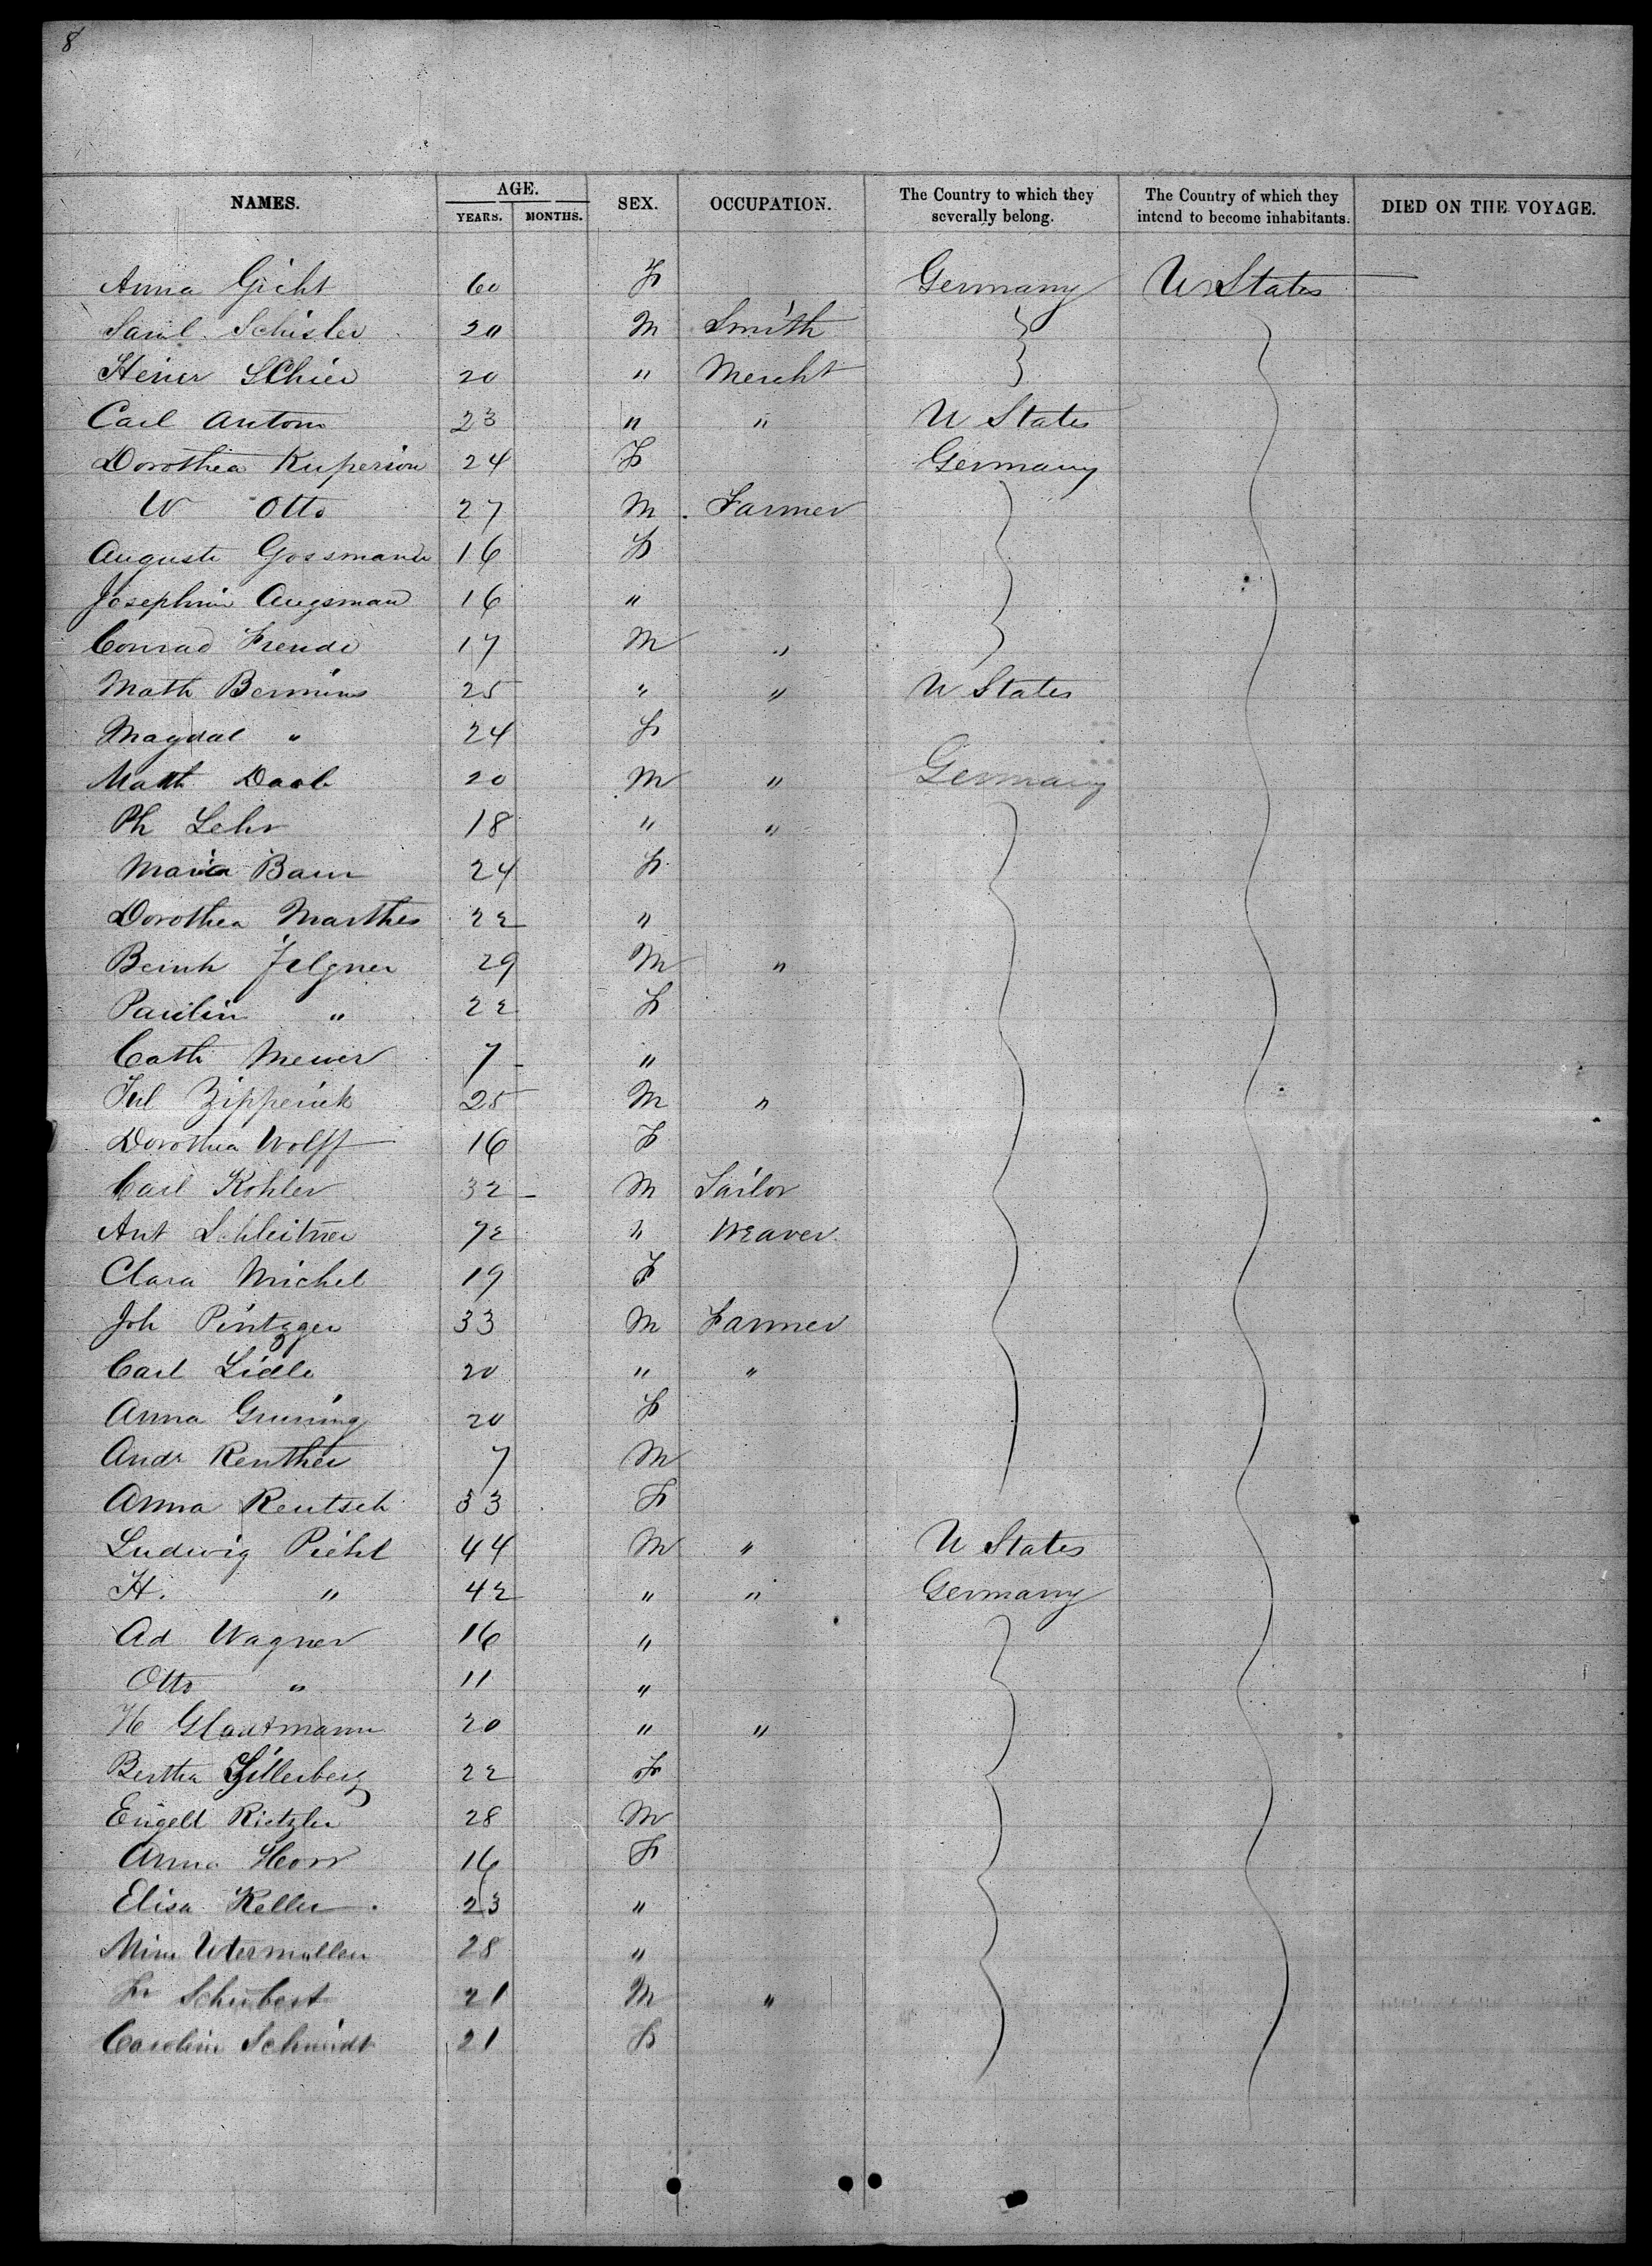 8
NAMES. AGE. SEX. OCCUPATION. The Country to which they severally belong. The Country of which they intend to become inhabitants. DIED ON THE VOYAGE.
YEARS. MONTHS.
Anna Gicht 60 F Germany U States
Saml. Schisler 20 M Smith
Heinr Schier 20 " Mercht
Carl Anton 23 " " U States
Dorothea Kuperion 24 F Germany
W Otto 27 M Farmer
Auguste Gossmann 16 F
Josephin Augsman 16 "
Conrad Freude 17 M "
Math Bermins 25 " " U States
Magdal " 24 F
Math Daab 20 M " Germany
Ph Lehr 18 " "
Maria Baur 24 F
Dorothea Marthes 22 "
Bernh Jelgner 29 M "
Paulin " 22 F
Cath Meuer 7 "
Jul Zipperick 25 M "
Dorothea Wolff 16 F
Carl Kohler 32 M Tailor
Ant Schleitner 72 " Weaver
Clara Michel 19 F
Joh Pintzger 33 M Farmer
Carl Lidle 20 " "
Anna Gruning 20 F
Andr Renther 7 M
Anna Rentsch 33 F
Ludwig Piehl 44 M " U States
H. " 42 " " Germany
Ad Wagner 16 "
Otto " 11 "
H Glautmann 20 " "
Bertha Hillerberg 22 F
Engelt Rietzler 28 M
Anna Horr 16 F
Elisa Keller 23 "
Mina Utermullen 28 "
Fr Schubert 21 M "
Carolin Schmidt 21 F